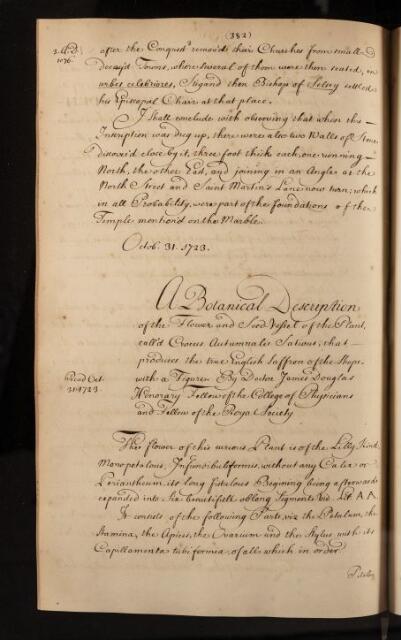 (382)
after the Conquest remov'd their Churches from small
decay'd Towns, where several of them were then seated, in
urbes celebriores, Stigand then Bishop of Selsey settled
his Episcopal Chair at that place.
I shall conclude with observing that when this
Inscription was dug up, there were also two Walls of Stone
discover'd close by it, three foot thick each, one running
North, the other East, and joining in an Angle as the
North Street and Saint Martin's Lane now turn; which
in all Probability, were part of the foundations of the
Temple mention'd on the Marble.
Octob. 31. 1723.
A Botanical Description
of the Flower and Seed Vessel of the Plant,
call'd Crocus Autumnalis Sativus; that
produces the true English Saffron of the Shops.
Read Oct. with a Figure. By Doctor James Douglas
31. 1723 Honorary Fellow of the College of Physicians
and Fellow of the Royal Society
The flower of this curious Plant is of the Lilly Kind,
Monopetalous, Infundibuliformis, without any Calix or
Perianthium, its long fistulous Begining being afterwards
expanded into Six beautifull oblong Segments Vid. Lit. A A.
It consists of the following Parts, viz. the Petalum, the
Stamina, the Apices, the Ovarium and the Stylus with its
Capillamenta tubiformia, of all which in order